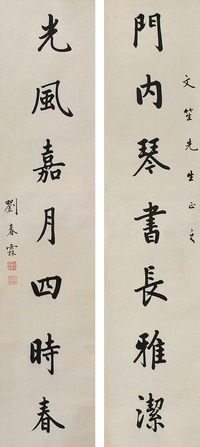 文笙先生正之
門內琴書長雅潔
光風嘉月四時春
劉春霖